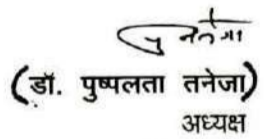 (डॉ. पुष्पलता तनेजा)
अध्यक्ष